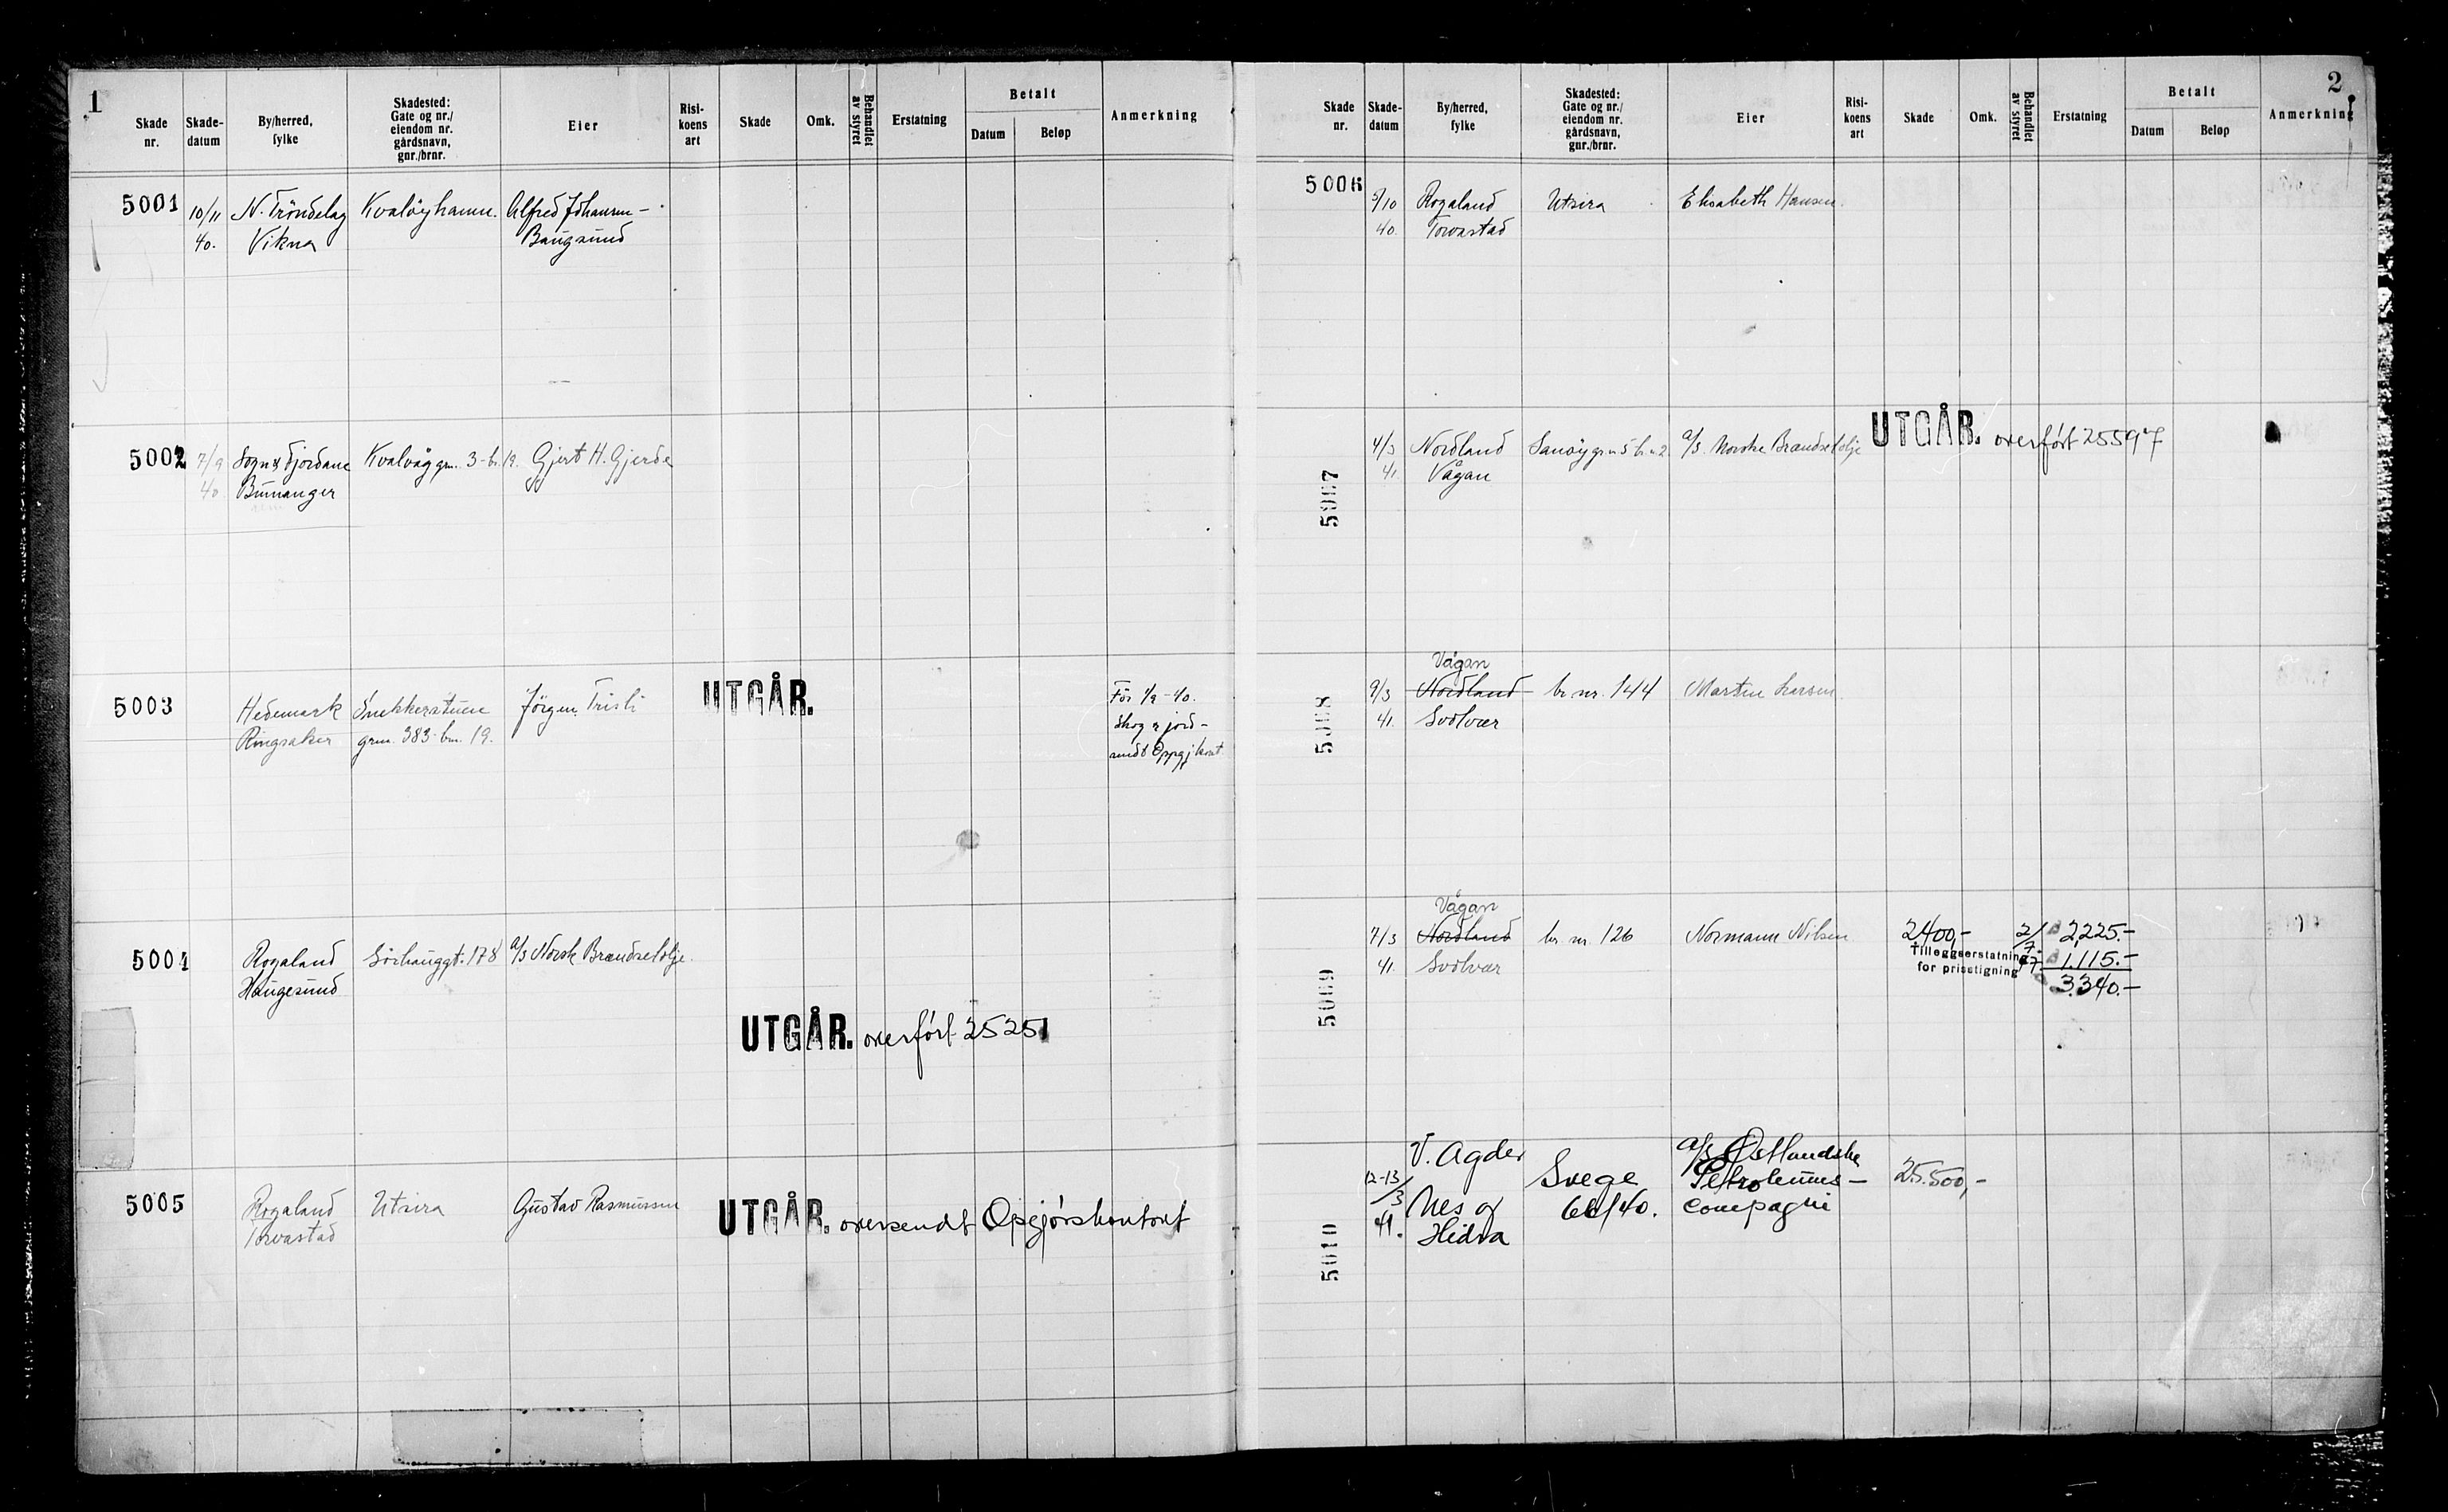 1
Skade nr.
Skade-datum
By/herred, fylke
Skadested: Gate og nr./ eiendom nr. gårdsnavn, gnr./brnr.
Eier
Risi-koens art
Skade
Omk.
Behandlet av styret
Erstatning
Betalt
Datum
Beløp
Anmerkning
5001 10/11 N. Tröndelag Kvalöyhamn. Alfred Johansen-
40. Vikna Baugsund
5002 7/9 Sogn & Fjordane Kvalvåg grn. 3-br. 19. Gjert H. Gjerde
40
5003 Hedemark Snekkerstuen Jörgen UTGÅR. För 1/9-40.
Ringsaker grnr. 383 bnr. 19. Skog & jord-
sendt Oppgj kont.
5004 Rogaland Sörhauggt. 178 a/s Norsk Brændselolje.
Haugesund
UTGÅR. overfört 25251
5005 Rogaland Utsira Gustav Rasmussen UTGÅR. oversendt Opgjörskontoret
Torvastad
2
Skade nr.
Skade-datum
By/herred, fylke
Skadested: Gate og nr./ eiendom nr. gårdsnavn, gnr./brnr.
Eier
Risi-koens art
Skade
Omk.
Behandlet av styret
Erstatning
Betalt
Datum
Beløp
Anmerkning
5006 5/10 Rogaland Utsira Elisabeth Hansen.
40. Torvastad
5007 4/3 Nordland gr. n 5 br. n 2 a/s. Norske Brændselolje UTGÅR. overfört 25597
41. Vågan
Vågan
5008 9/3 Nordland br nr. 144 Martin Larsen.
41. Svolvær
Vågan
5009 7/3 Nordland br nr. 126 Normann Nilsen 2400,- 2/7. 2,225.-
41. Svolvær Tilleggserstatning 1.115.-
for prisstigning 3.340.-
5010 12-13/3 V. Agder Svege a/s Østlandske 25.500,-
41. Nes og 66/40. Petroleums-
Hidra compagni